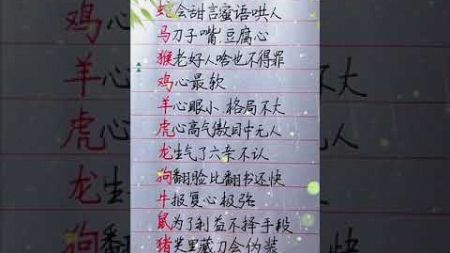 蛇会甜言蜜语哄人
马刀子嘴.豆腐心
猴老好人啥也不得罪
鸡心最软
羊心眼小.格局不大
虎心高气傲目中无人
龙生气了六亲不认
狗翻脸比翻书还快
牛报复心极强
鼠为了利益不择手段
猪笑里藏刀会伪装